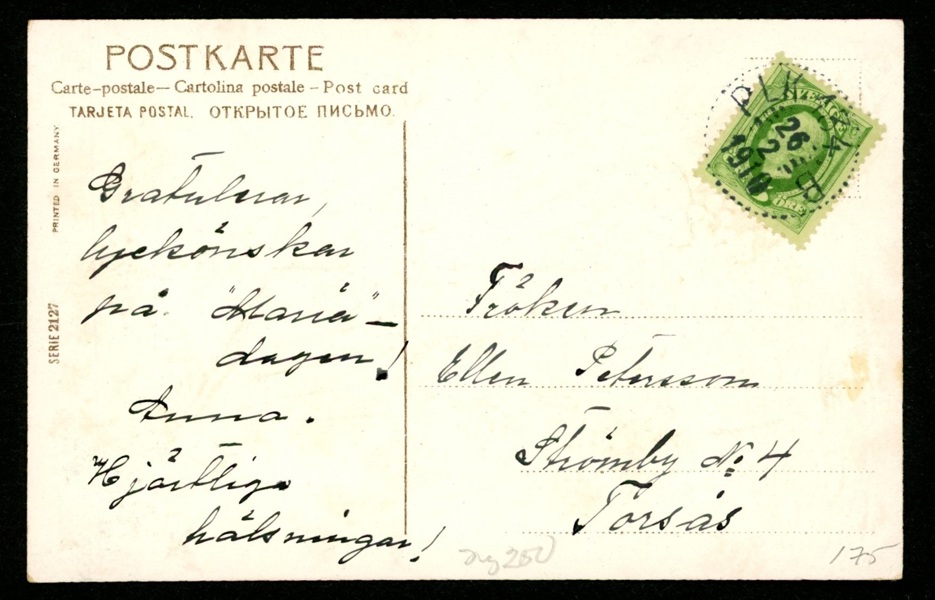 POSTKARTE
Carte-postale — Cartolina postale – Post card
TARJETA POSTAL. ОТКРЫТОЕ ПИСЬМО.
PRINTED IN GERMANY
SERIE 2127
Gratulerar,
lyckönskar
på "Maria"-
dagen!
Anna.
Hjärtliga
hälsningar!
PLK
26
2
1910
ÖRE
Fröken
Ellen Petersson
Strömby No 4
Torsås
175